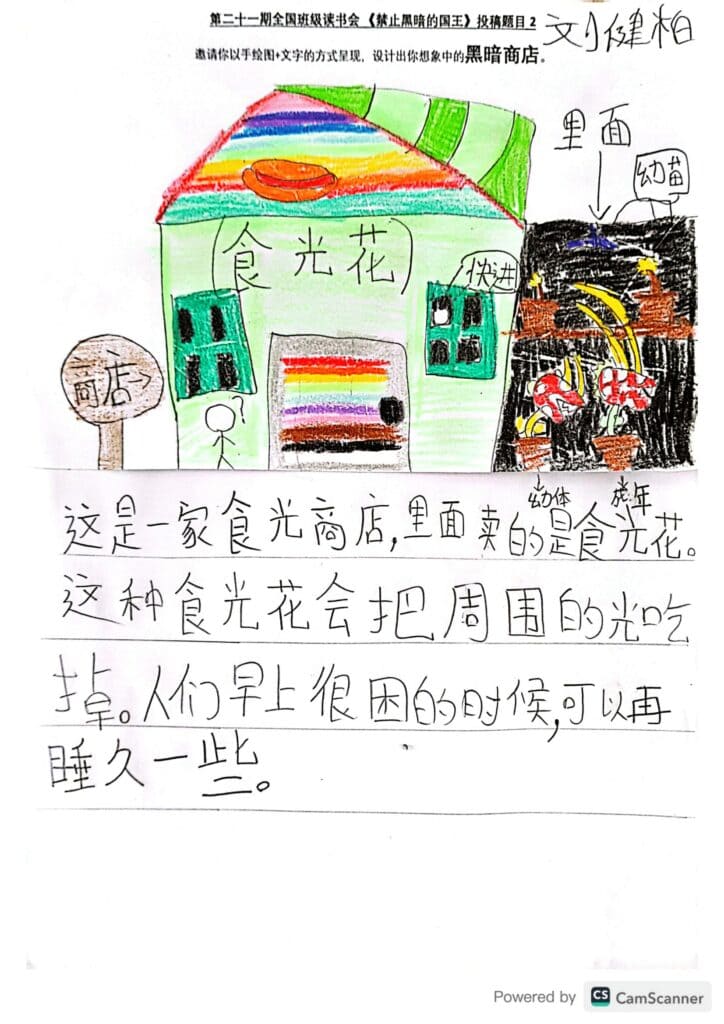 第二十一期全国班级读书会《禁止黑暗的国王》投稿题目2
刘健柏
邀请你以手绘图+文字的方式呈现，设计出你想象中的黑暗商店。
里面
幼苗
(食光花)
快进
商店→
?
幼体
成年
这是一家食光商店,里面卖的是食光花。
这种食光花会把周围的光吃
掉。人们早上很困的时候,可以再
睡久一些。
Powered by CS CamScanner